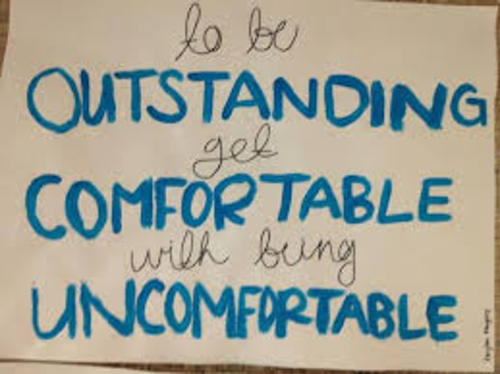 to be
OUTSTANDING
get
COMFORTABLE
with being
UNCOMFORTABLE